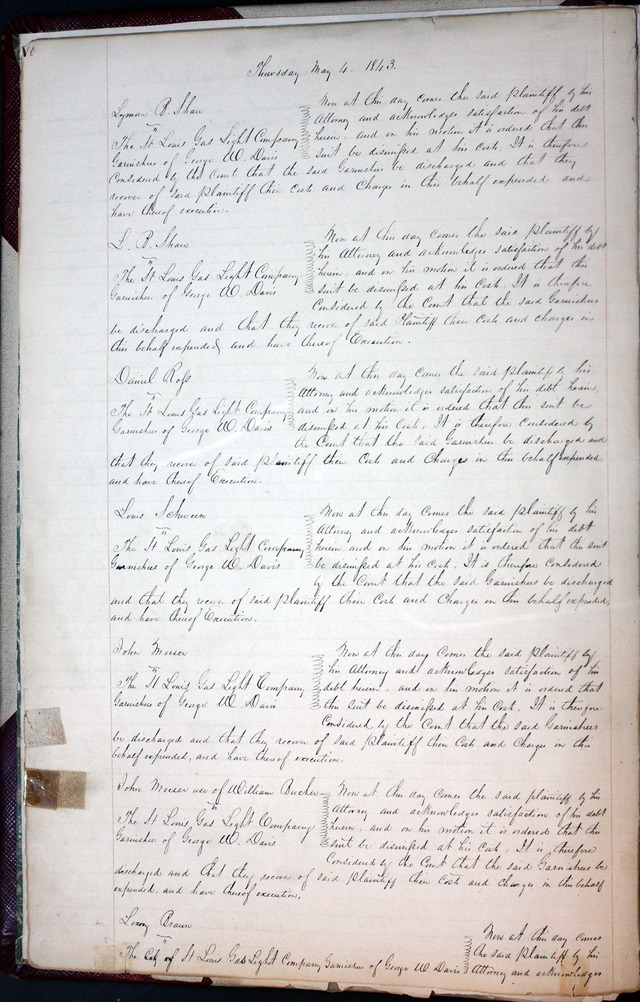 Thursday May 4. 1843.
Lyman B. Shaw
vs
The St Louis Gas Light Company
Garnishees of George W. Davis
Now at this day comes the said plaintiff by his
Attorney and acknowledges satisfaction of his debt
herein. and on his motion it is ordered that this
suit be dismissed at his cost. It is therefore
Considered by the Court that the said Garnishees be discharged and that they
recover of said plaintiff their Costs and Charges in this behalf expended and
have thereof execution.
L. B. Shaw
vs
The St Louis Gas Light Company
Garnishees of George W. Davis
Now at this day comes the said plaintiff by
his Attorney and acknowledges satisfaction of his debt
herein. and on his motion it is ordered that this
suit be dismissed at his Cost. It is therefore
Considered by the Court that the said Garnishees
be discharged and that they recover of said Plaintiff their Costs and charges in
this behalf expended, and have thereof Execution.
Daniel Ross
vs
The St Louis Gas Light Company
Garnishees of George W. Davis
Now at this day comes the said plaintiff by his
Attorney and acknowledges satisfaction of his debt herein,
and on his motion it is ordered that this suit be
dismissed at his Cost. It is therefore Considered by
the Court that the said Garnishees be discharged and
that they recover of said plaintiff their Costs and Charges in this behalf expended
and have thereof Execution.
Louis
vs
The St Louis Gas Light Company
Garnishees of George W. Davis
Now at this day Comes the said plaintiff by his
Attorney and acknowledges satisfaction of his debt
herein and on his motion it is ordered that this suit
be dismissed at his Cost. It is therefore Considered
by the Court that the said Garnishees be discharged
and that they recover of said plaintiff their Costs and Charges in this behalf expended,
and have thereof Execution.
John
vs
The St Louis Gas Light Company
Garnishees of George W. Davis
Now at this day Comes the said plaintiff by
his Attorney and acknowledges satisfaction of his
debt herein. and on his motion it is ordered that
this suit be dismissed at his Cost. It is therefore
Considered by the Court that the said Garnishees
be discharged and that they recover of said Plaintiff their Costs and Charges in this
behalf expended, and have thereof execution.
John use of William
vs
The St Louis Gas Light Company
Garnishee of George W. Davis
Now at this day comes the said plaintiff by his
Attorney and acknowledges satisfaction of his debt
herein. and on his motion it is ordered that this
suit be dismissed at his Cost. It is, therefore
Considered by the Court that the said Garnishees be
discharged and that they recover of said plaintiff their Costs and charges in this behalf
expended, and have thereof execution,
Braun
vs
The of St Louis Gas Light Company Garnishees of George W Davis
Now at this day comes
the said plaintiff by his
Attorney and acknowledges